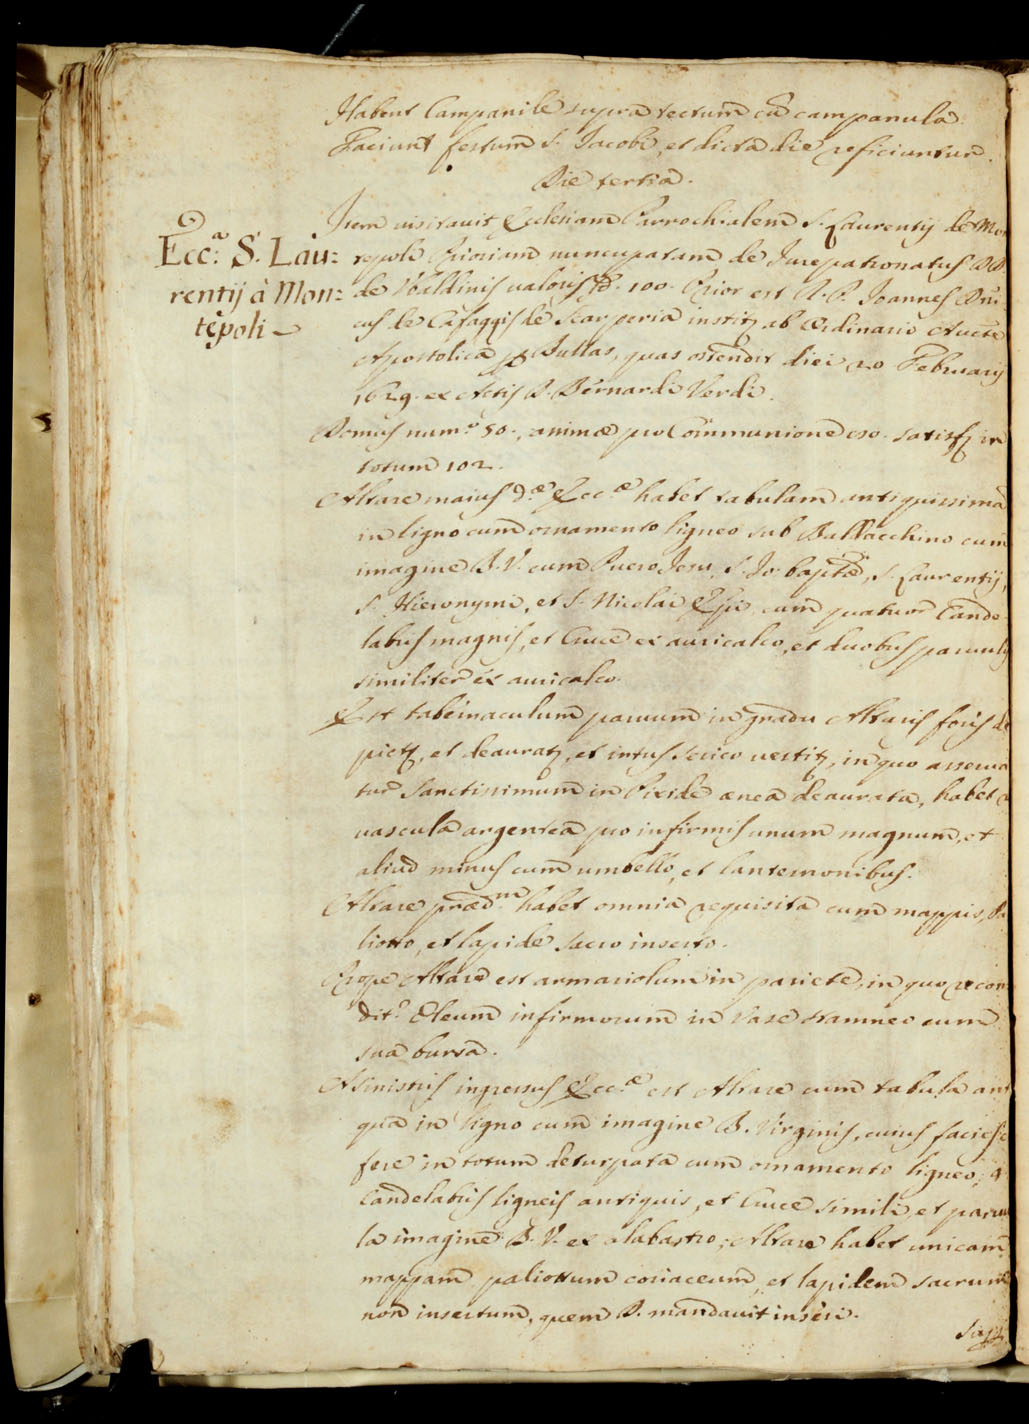 Habent Campanile supra tectum cũ campanula.
Faciunt festum S. Jacobi, et dicta die reficiuntur.
Die tertia.
Item visitavit Ecclesiam Parrochialem S. Laurentij de Mon
Ecc.ᵃ S. Lau=
rentij à Mon=
tepoli
tepoli Prioriam nuncupatam de Jurepatronatus DD.
de Ubaldinis valoris 100. Prior est R. P. Joannes
cus de Cafaggis de Scarperia instit. ab Ordinario Aucte
Apostolica p Bullas, quas ostendit diei 20 Februarij
1629. ex Actis D. Bernardi Verdi.
Domus num.º 50., animæ pro Communione 50. satisf. in
totum 102.
Altare maius d.æ Ecc.æ habet tabulam antiquissima
in ligno cum ornamento ligneo sub Baldacchino cum
imagine B. V. cum Puero Jesu, S. Jo. baptæ, S. Laurentij,
S. Hieronymi, et S. Nicolai Epi cum quatuor Cande
labris magnis, et Cruce ex auricalco, et duobus parvulis
similiter ex auricalco.
Est tabernaculum parvum in gradu Altaris foris de
pict., et deaurat., et intus serico vestit., in quo asserva
tur Sanctissimum in Pixide ænea deaurata, habet 2
vascula argentea pro infirmis unum magnum, et
aliud minus cum umbello, et lanternonibus.
Altare præd.m habet omnia requisita cum mappis, Pa
liotto, et lapide sacro inserto.
Prope Altare est armariolum in pariete, in quo recon
dit.r Oleum infirmorum in vase stamneo cum
sua bursa.
A sinistris ingressus Ecc.æ est Altare cum tabula anti
qua in ligno cum imagine B. Virginis, cuius facies e
fere in totum deturpata cum ornamento ligneo, 4
Candelabris ligneis antiquis, et Cruce simili, et parvu
la imagine B. V. ex alabastro; Altare habet unicam
mappam paliottum coriaceum, et lapidem sacrum
non insertum, quem D. mandavit inseri.